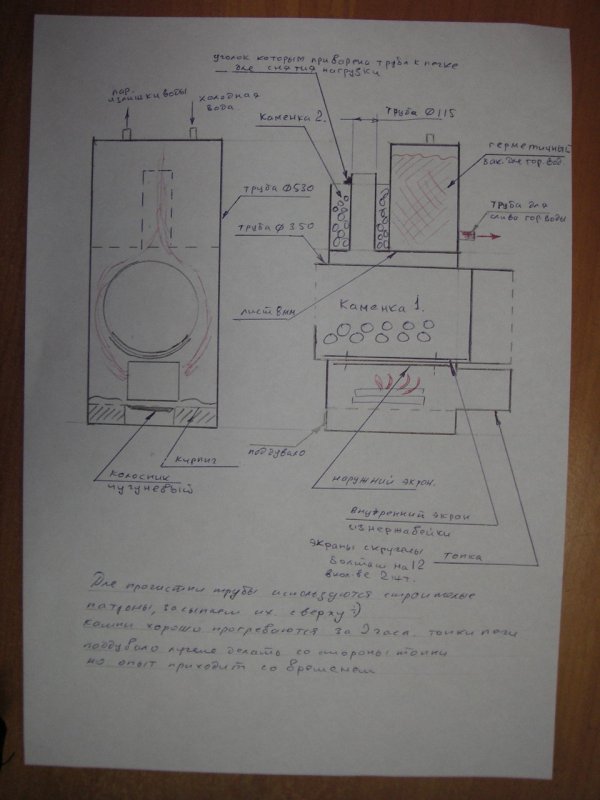 уголок которым приварена труба к печке
для снятия нагрузки
пар.
излишки воды
холодная
вода
Каменка 2.
труба Ф115
герметичный
бак для гор. вод.
труба Ф530
труба для
слива гор. воды
труба Ф350
лист 8мм
Каменка 1.
поддувало
кирпич
колосник
чугуневый
наружний экран.
внутренний экран
из нержавейки
экраны скручены
болтами на 12
в кол-ве 2 шт.
топка
Для прочистки трубы используются строительные
патроны, засыпаем их сверху :)
камни хорошо прогреваются за 2 часа топки печи
поддувало лучше делать со стороны топки
но опыт приходит со временем